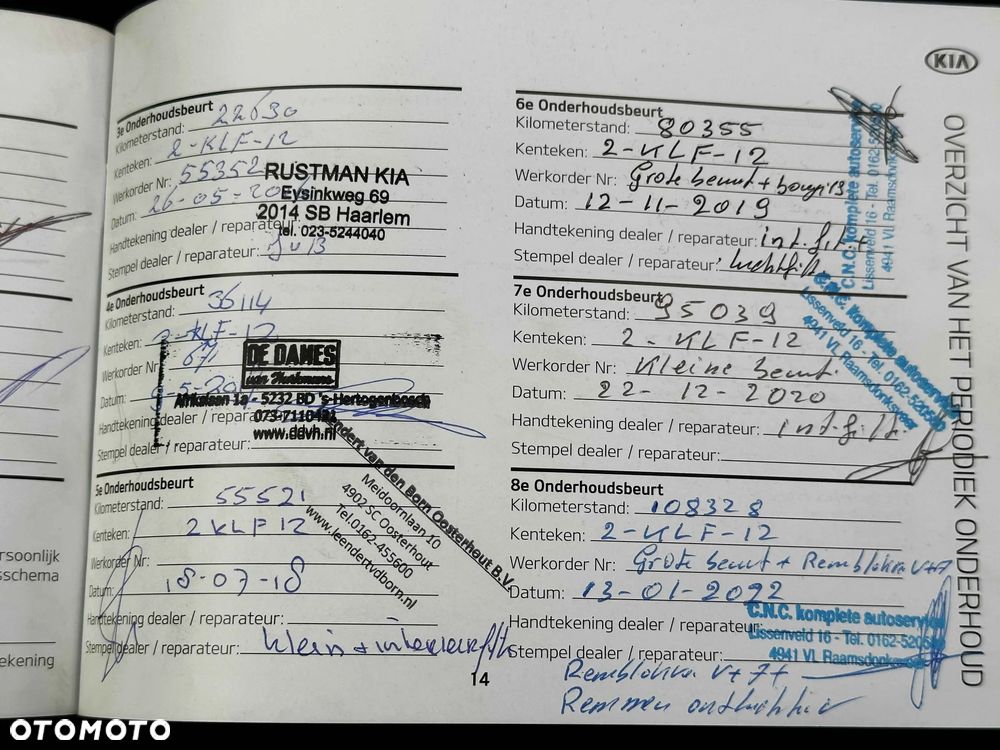 KIA
OVERZICHT VAN HET PERIODIEK ONDERHOUD
3e Onderhoudsbeurt
Kilometerstand: 22630
Kenteken: 2-KLF-12
Werkorder Nr: 55352
Datum: 26-05-20
Handtekening dealer / reparateur:
Stempel dealer / reparateur:
RUSTMAN KIA
Eysinkweg 69
2014 SB Haarlem
tel. 023-5244040
4e Onderhoudsbeurt
Kilometerstand: 36114
Kenteken: 2-KLF-12
Werkorder Nr: 671
Datum: 5-20
Handtekening dealer / reparateur:
Stempel dealer / reparateur:
DE DAMES
Afrikalaan 1a - 5232 BD 's-Hertogenbosch
www.ddvh.nl
5e Onderhoudsbeurt
Kilometerstand: 55521
Kenteken: 2KLF12
Werkorder Nr:
Datum: 18-07-18
Handtekening dealer / reparateur:
Stempel dealer / reparateur: klein + interieurfilt
van den Born Oosterhout B.V.
Meidoornlaan 10
4902 SC Oosterhout
Tel.0162-455600
www.leendertvdborn.nl
6e Onderhoudsbeurt
Kilometerstand: 80355
Kenteken: 2-KLF-12
Werkorder Nr: Grote beurt + bougies
Datum: 12-11-2019
Handtekening dealer / reparateur: int.filt +
Stempel dealer / reparateur: luchtfilt
C.N.C. komplete autoservice
Lissenveld 16 - Tel. 0162-520
4941 VL Raamsdonksveer
7e Onderhoudsbeurt
Kilometerstand: 95039
Kenteken: 2-KLF-12
Werkorder Nr: Kleine beurt
Datum: 22-12-2020
Handtekening dealer / reparateur: int.filt.
Stempel dealer / reparateur:
C.N.C. komplete autoservice
Lissenveld 16 - Tel. 0162-520
4941 VL Raamsdonksveer
8e Onderhoudsbeurt
Kilometerstand: 108328
Kenteken: 2-KLF-12
Werkorder Nr: Grote beurt + Remblokken V+A
Datum: 13-01-2092
Handtekening dealer / reparateur:
Stempel dealer / reparateur:
C.N.C. komplete autoservice
Lissenveld 16 - Tel. 0162-520
4941 VL Raamsdonksveer
Remblokken V+A+
Remmen
14
rsoonlijk
sschema
ekening
OTOMOTO